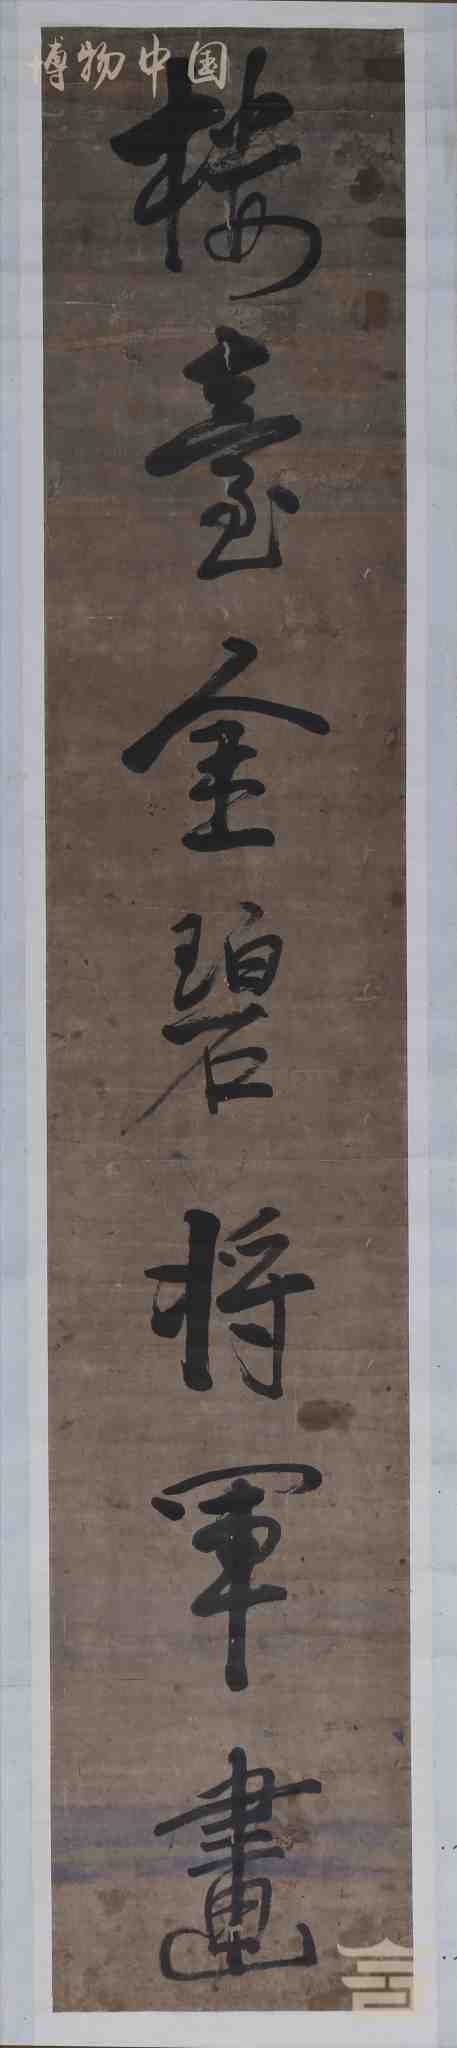 博物中国
楼臺金碧将軍畫